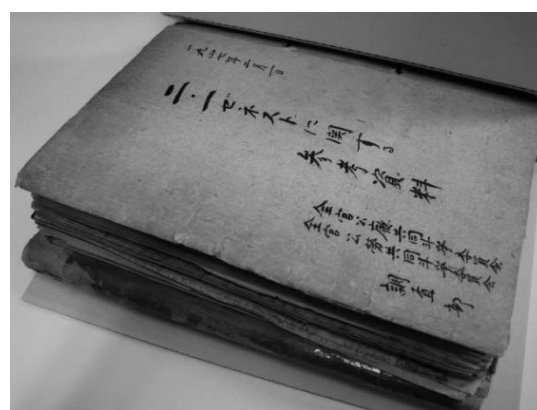 一九四七年二月一日
二・一ゼネストに関する
参考資料
全官公廳共同斗争委員会
全官公労共同斗争委員会
調査部